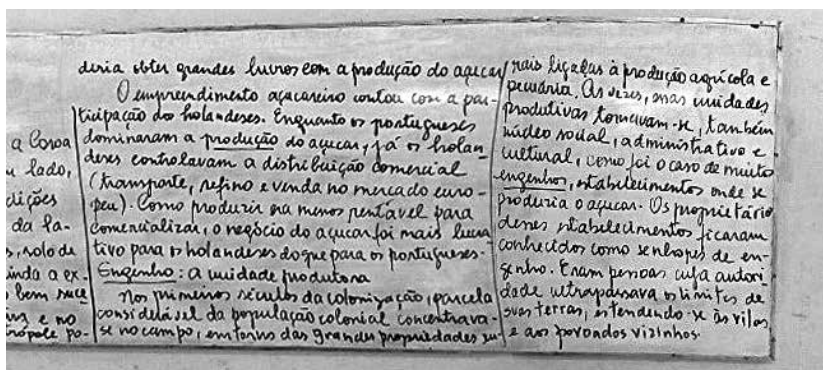 a Coroa
lado,
dições
da fa-
, solo de
inda a ex-
bem suce
e no
trópole po-
deria obter grandes lucros com a produção do açucar
O empreendimento açucareiro contou com a par-
ticipação dos holandeses. Enquanto os portugueses
dominaram a produção do açucar, já os holan-
deses controlavam a distribuição comercial
(transporte, refino e venda no mercado euro-
peu). Como produzir era menos rentável para
comercializar, o negócio do açucar foi mais lucra
tivo para os holandeses do que para os portugueses.
Engenho: a unidade produtora
Nos primeiros séculos da colonização, parcela
considerável da população colonial concentrava-
se no campo, em torno das grandes propriedades ru-
rais ligadas à produção agrícola e
pecuária. Às vezes, essas unidades
produtivas tornavam-se, também
núcleo social, administrativo e
cultural, como foi o caso de muitos
engenhos, estabelecimentos onde se
produzia o açucar. Os proprietário
desses estabelecimentos ficaram
conhecidos como senhores de en-
genho. Eram pessoas cuja autori
dade ultrapassava os limites de
suas terras, estendendo-se às vilas
e aos povoados vizinhos.